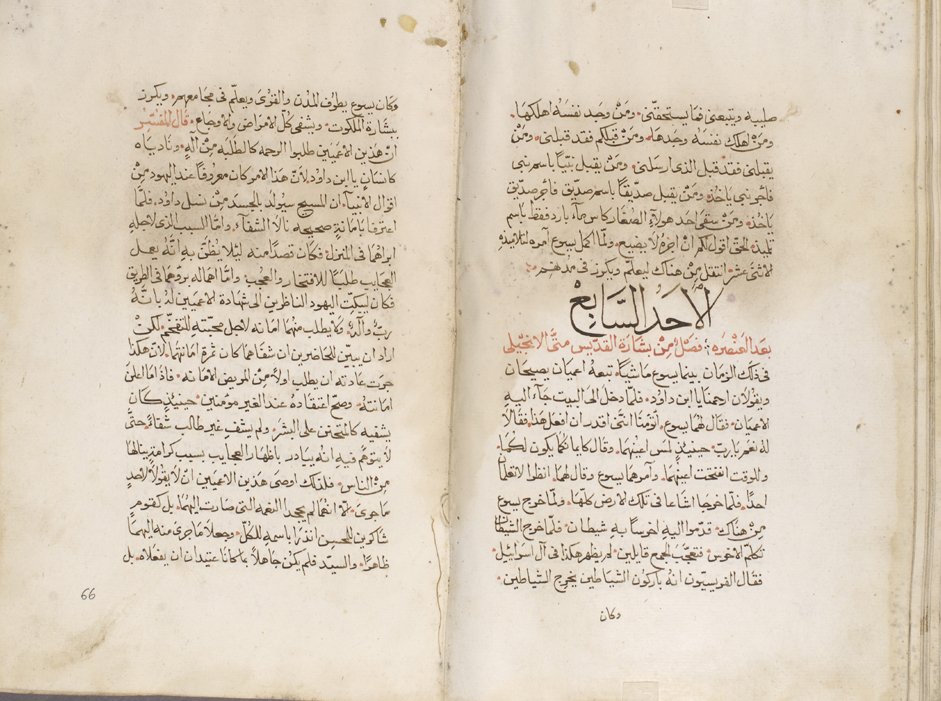 صليبه ويتبعني فما يستحقني. ومن وجد نفسه اهلكها.
ومن اهلك نفسه وجدها. ومن قبلكم فقد قبلني. ومن
يقبلني فقد قبل الذي ارسلني. ومن يقبل نبيًا باسم نبي
فاجر نبي ياخذ. ومن يقبل صديقًا باسم صديق فاجر صديق
ياخذ. ومن سقى احد هولاء الصغار كاس ماء بارد فقط باسم
تلميذ. الحق اقول لكم ان اجره لا يضيع. ولما اكمل يسوع آمره لتلاميذه
الاثنى عشر انتقل من هناك ليعلّم ويكرز في مدنهم
الأحد السَّابع
بعد العنصره فصل من بشارة القديس متى الانجيلي
في ذلك الزمان بينما يسوع ماشيًا. تبعه اعميان يصيحان
ويقولان ارحمنا يا ابن داود. فلما دخل الى البيت جآء اليه
الاعميان. فقال لهما يسوع. أتومنا انني اقدر ان افعل هذا. فقالا
له نعم يا رب. حينيذٍ لمس اعينهما. وقال كايمانكما يكون لكما.
وللوقت انفتحت اعينهما. وآمرهما يسوع وقال لهما. انظرا لا تعلما
احدًا. فلما خرجا اشاعا في تلك الارض كلها. ولما خرج يسوع
من هناك. قدموا اليه اخرسًا به شيطان. فلما خرج الشيطان
تكلم الاخرس. فتعجب الجمع قايلين. لم يظهر هكذا في آل اسراييل.
فقال الفريسيون انه باركون الشياطين يخرج الشياطين.
وكان
وكان يسوع يطوف المدن والقرى ويعلّم في مجامعهم. ويكرز
ببشارة الملكوت. ويشفي كل الامراض والاوجاع. قال المفسر
ان هذين الاعميين طلبوا الرحمه كالطلبه من آله. وناديـاه
كانسانٍ يا ابن داود. لأن هذا الامر كان معروفًا عند اليهود من
اقوال الانبيآء. ان المسيح سيولد بالجسد من نسل داود. فلما
اعترفا بامانةٍ صحيحه نالا الشفآء. وامّا السبب الذي لاجله
ابراهما في المنزل. فكان قصدًا منه ليلا يُظن به انه يعمل
العجايب طلبًا للافتخار والعجب. وامّا اهماله بردهما في الطريق
فكان ليبكت اليهود الناظرين الى شهادة الاعميين له بانه
ربّ وآله. ولا يطلب منهما امانه لاجل محبّته للتفخم. لكن
اراد ان يبين للحاضرين ان شفاهما كان ثمرة امانتهما. لان هكذا
جرت عادته ان يطلب اولاً من المريض الامانه. فاذا ما اعلن
امانته. وصحّ اعتقاده عند الغير مومنين. حينيذٍ كان
يشفيه كالمتحنن على البشر. ولم يشفِ غير طالب شفآءً حتى
لا يتوهم فيه انه يبادر باظهار العجايب بسبب كرامةٍ ينالها
من الناس. فلذلك اوصى هذين الاعميين ان لا يقولا لاحدٍ
ما جرى. الّا انهما لم يجحدا النعمه التي صارت اليهما. بل كقومٍ
شاكرين للمحسن انذرا باسمه للكل. وجعلا ما جرى منه اليهما
ظاهرًا. والسيّد فلم يكن جاهلاً بما كانا عتيدان ان يفعلاه. بل
66